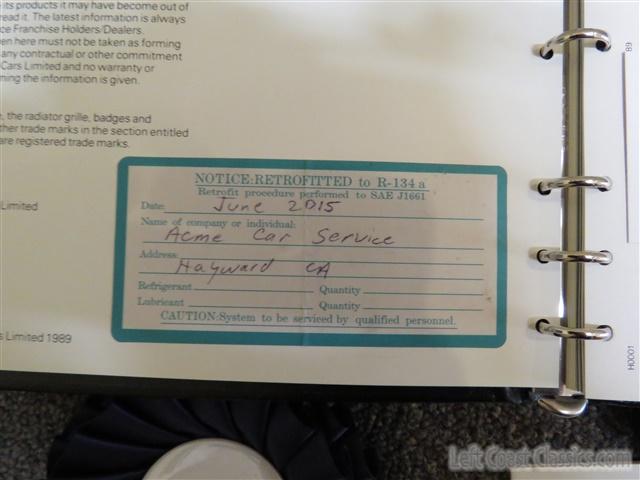 its products it may have become out of
read it. The latest information is always
ce Franchise Holders/Dealers.
en here must not be taken as forming
any contractual or other commitment
Cars Limited and no warranty or
ming the information is given.
, the radiator grille, badges and
ther trade marks in the section entitled
are registered trade marks.
Limited
s Limited 1989
NOTICE:RETROFITTED to R-134a
Retrofit procedure performed to SAE J1661
Date: June 2015
Name of company or individual:
Acme Car Service
Address:
Hayward CA
Refrigerant Quantity
Lubricant Quantity
CAUTION:System to be serviced by qualified personnel.
89
H0001
Left Coast Classics.com